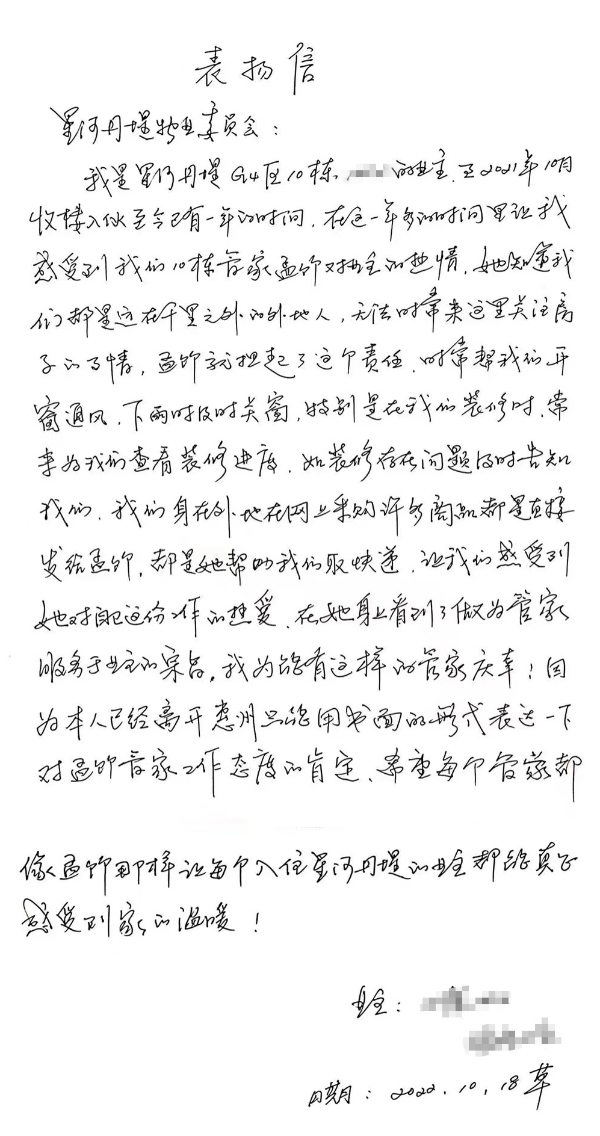 表扬信
星河丹堤物业委员会：
我是星河丹堤G4区10栋 的业主，至2021年10月
收楼入伙至今已有一年的时间，在这一年多的时间里让我
感受到我们10栋管家孟娇对业主的热情，她知道我
们都是远在千里之外的外地人，无法时常来这里关注房
子的事情，孟娇就担起了这个责任，时常帮我们开
窗通风，下雨时及时关窗，特别是在我们装修时，常
来为我们查看装修进度，如装修存在问题及时告知
我们，我们身在外地在网上采购许多商品都是直接
发给孟娇，都是她帮助我们取快递，让我们感受到
她对自己这份工作的热爱，在她身上看到了做为管家
服务于业主的 ，我为能有这样的管家庆幸！因
为本人已经离开惠州只能用书面的形式表达一下
对孟娇管家工作态度的肯定，希望每个管家都
像孟娇那样让每个入住星河丹堤的业主都能真正
感受到家的温暖！
业主：
日期：2022.10.18草